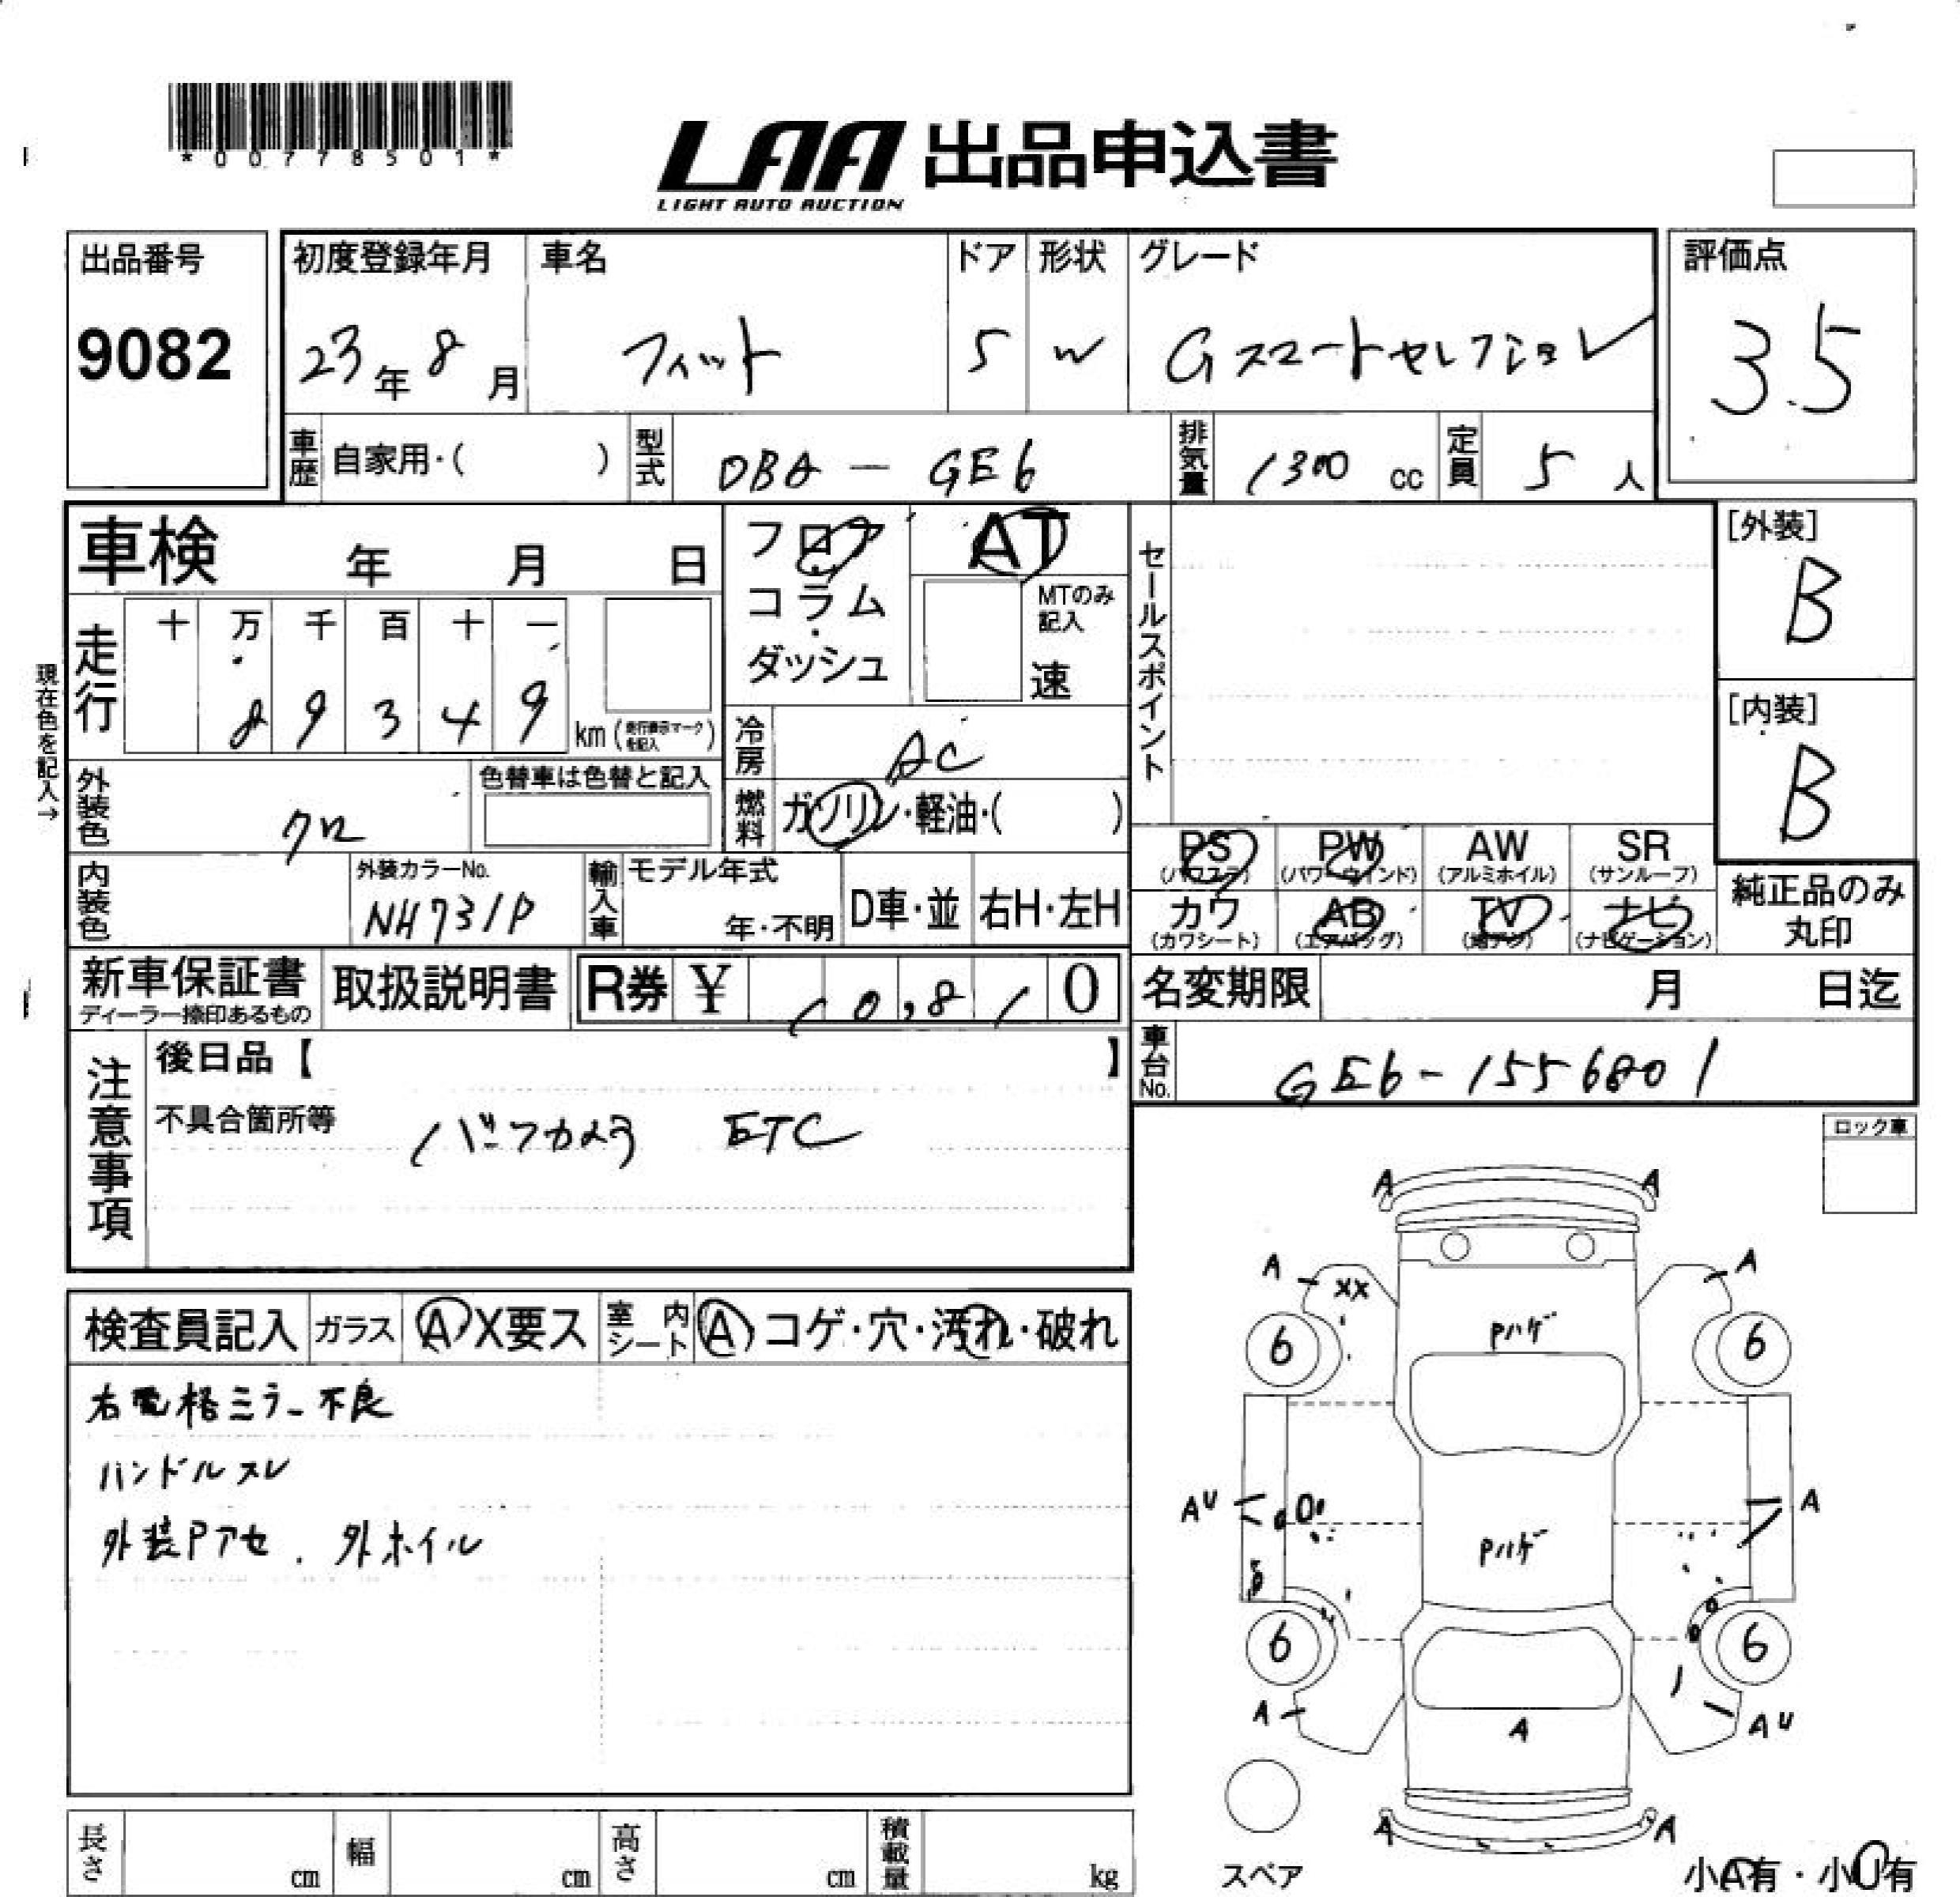 *00778501*
LAA 出品申込書
LIGHT AUTO AUCTION
出品番号
9082
初度登録年月
23年8月
車名
フィット
ドア
5
形状
W
グレード
Gスマートセレクション
評価点
3.5
車歴 自家用・( )
型式 DBA-GE6
排気量 1300 cc
定員 5 人
車検 年 月 日
フロア
コラム
ダッシュ
AT
MTのみ記入
速
セールスポイント
[外装]
B
[内装]
B
現在色を記入→
走行
十 万 千 百 十 一
8 9 3 4 9
km (走行表示マークを記入)
冷房 AC
外装色 クロ
色替車は色替と記入
燃料 ガソリン・軽油・( )
PS (パワステ)
PW (パワーウインド)
AW (アルミホイル)
SR (サンルーフ)
カワ (カワシート)
AB (エアバッグ)
TV (地デジ)
ナビ (ナビゲーション)
純正品のみ丸印
内装色
外装カラーNo.
NH731P
輸入車
モデル年式
年・不明
D車・並
右H・左H
新車保証書
ディーラー捺印あるもの
取扱説明書
R券 ¥ 10,810
名変期限 月 日迄
車台No. GE6-1556801
注意事項
後日品【 】
不具合箇所等
バックカメラ ETC
ロック車
検査員記入
ガラス A X要ス
室内シート A コゲ・穴・汚れ・破れ
右電格ミラー不良
ハンドルスレ
外装Pアセ. 外ホイル
A A
A XX A
6 Pハゲ 6
AU A
Pハゲ
6 6
A A AU
A A
スペア
小A有・小U有
長さ cm
幅 cm
高さ cm
積載量 kg